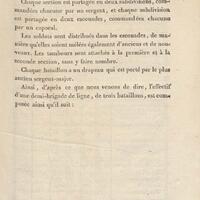 Chaque section est partagée en deux subdivisions, com-
mandées chacune par un sergent, et chaque subdivision
est partagée en deux escouades, commandées chacune
par un caporal.
Les soldats sont distribués dans les escouades, de ma-
nière qu'elles soient mêlées également d'anciens et de nou-
veaux. Les tambours sont attachés à la première et à la
seconde section, sans y faire nombre.
Chaque bataillon a un drapeau qui est porté par le plus
ancien sergent-major.
Ainsi, d'après ce que nous venons de dire, l'effectif
d'une demi-brigade de ligne, de trois bataillons, est com-
posée ainsi qu'il suit :